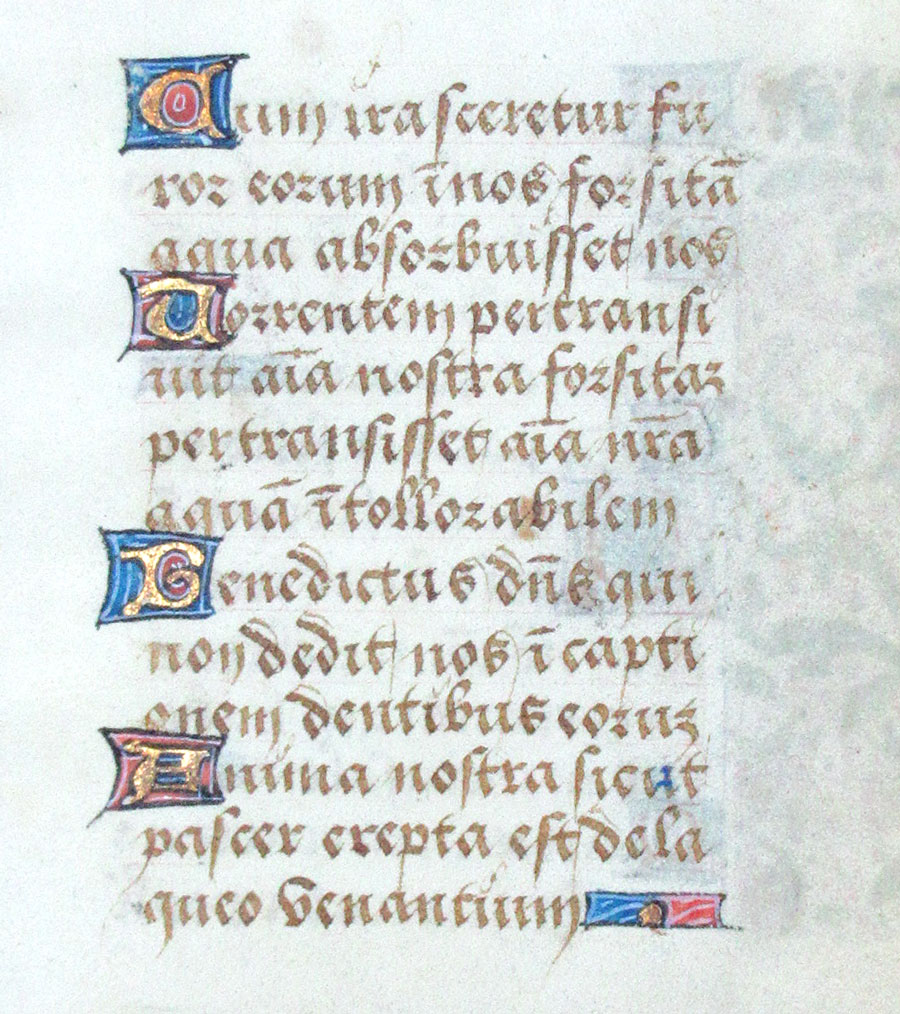 Cum irasceretur fu
ror eorum ī nos forsitā
aqua absorbuisset nos
Torrentem pertransi
uit aīa nostra forsitaz
pertransisset aīa nr̄a
aquā ītollorabilem
Benedictus dn̄s qui
non dedit nos ī capti
onem dentibus eoruz
Anima nostra sicut
pascer erepta est de la
queo venantium